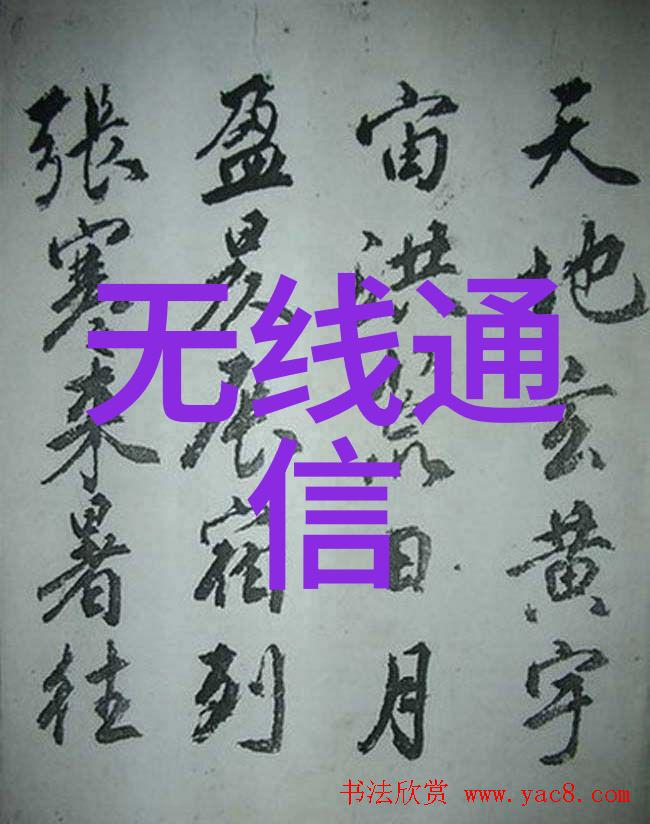 天地玄黄宇
宙洪荒日月
盈昃辰宿列
張寒来暑往
无线通
信
书法欣赏 www.yac8.com